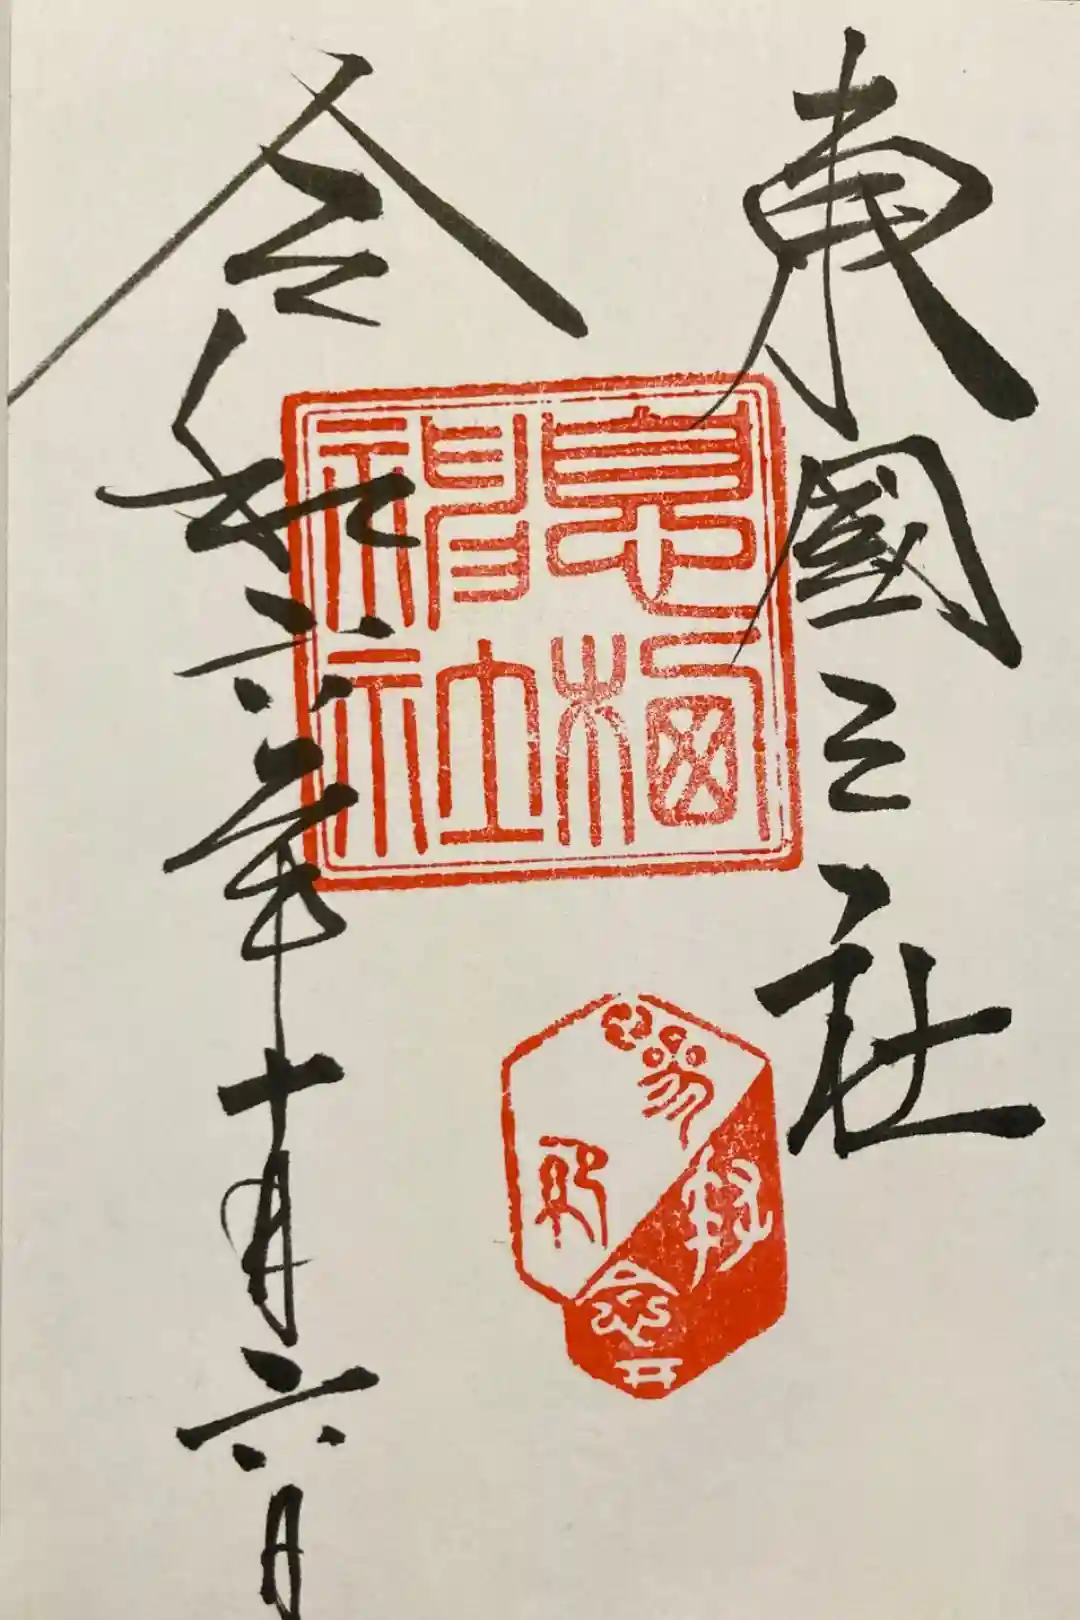 東國三社
息栖
神社
令和六年十月六日